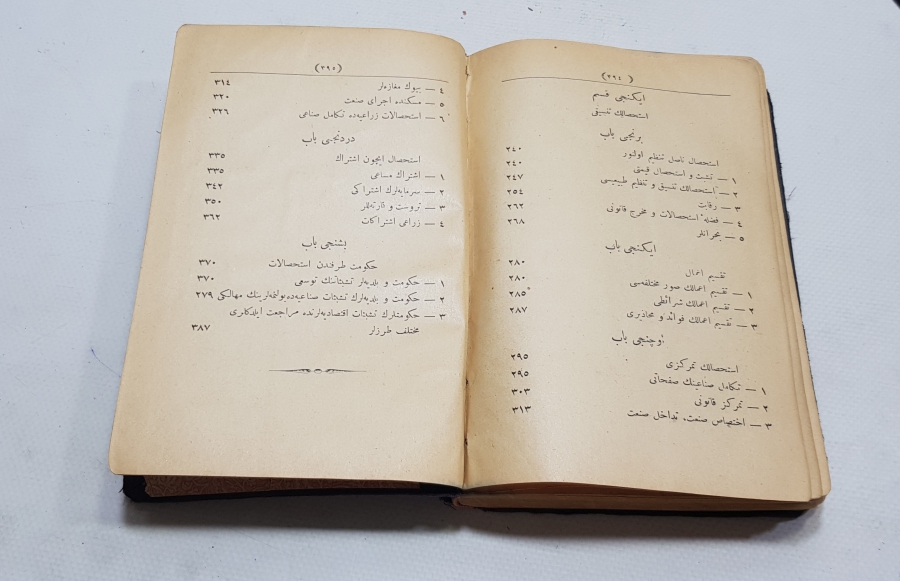 (٣٩٤)
ايكنجى قسم
استحصالك تنسيقى
برنجى باب
استحصال ناصل تنظيم اولنور ٢٤٠
١ — تشبث و استحصال قيمتى ٢٤٠
٢ — استحصالك تنسيق و تنظيم طبيعيسى ٢٤٧
٣ — رقابت ٢٥٤
٤ — فضلهٔ استحصالات و مخرج قانونى ٢٦٢
٥ — بحرانلر ٢٦٨
ايكنجى باب
تقسيم اعمال ٢٨٠
١ — تقسيم اعمالك صور مختلفه‌سى ٢٨٠
٢ — تقسيم اعمالك شرائطى ٢٨٥
٣ — تقسيم اعمالك فوائد و محاذيرى ٢٨٧
اوچنجى باب
استحصالك تمركزى ٢٩٥
١ — تكامل صناعينك صفحاتى ٢٩٥
٢ — تمركز قانونى ٣٠٣
٣ — اختصاص صنعت، تداخل صنعت ٣١٣
(٣٩٥)
٤ — بيوك مغازه‌لر ٣١٤
٥ — مسكنده اجراى صنعت ٣٢٠
٦ — استحصالات زراعيه‌ده تكامل صناعى ٣٢٦
دردنجى باب
استحصال ايچون اشتراك ٣٣٥
١ — اشتراك مساعى ٣٣٥
٢ — سرمايه‌لرك اشتراكى ٣٤٢
٣ — تروست و قارته‌للر ٣٥٠
٤ — زراعى اشتراكات ٣٦٢
بشنجى باب
حكومت طرفندن استحصالات ٣٧٠
١ — حكومت و بلديه‌لر تشبثاتنك توسعى ٣٧٠
٢ — حكومت و بلديه‌لرك تشبثات صناعيه‌ده بولنمه‌لرينك مهالكى ٢٧٩
٣ — حكومتلرك تشبثات اقتصاديه‌لرنده مراجعت ايلدكلرى
مختلف طرزلر ٣٨٧